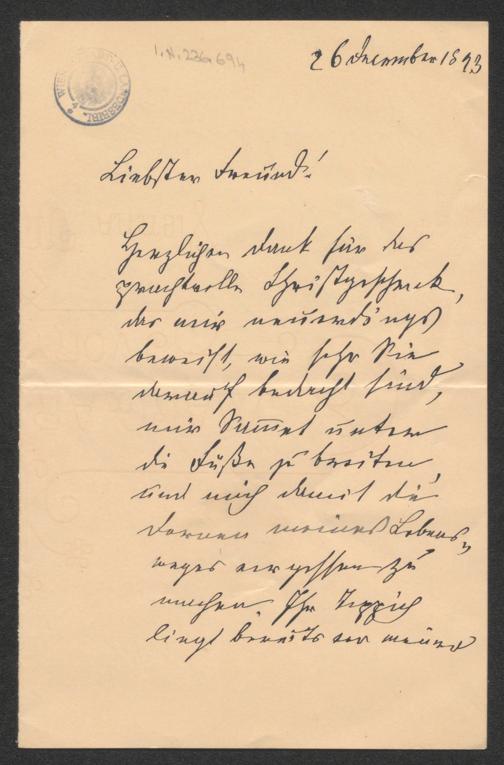 I.N. 226.694
26 December 1893
Liebster Freund!
Herzlichen Dank für das
prachtvolle Christgeschenk,
das mir neuerdings
beweist, wie sehr Sie
darauf bedacht sind,
mir Sammt unter
die Füße zu breiten,
und mich damit die
Dornen meines Lebens-
weges vergessen zu
machen. Ihr Teppich
liegt bereits vor meinem